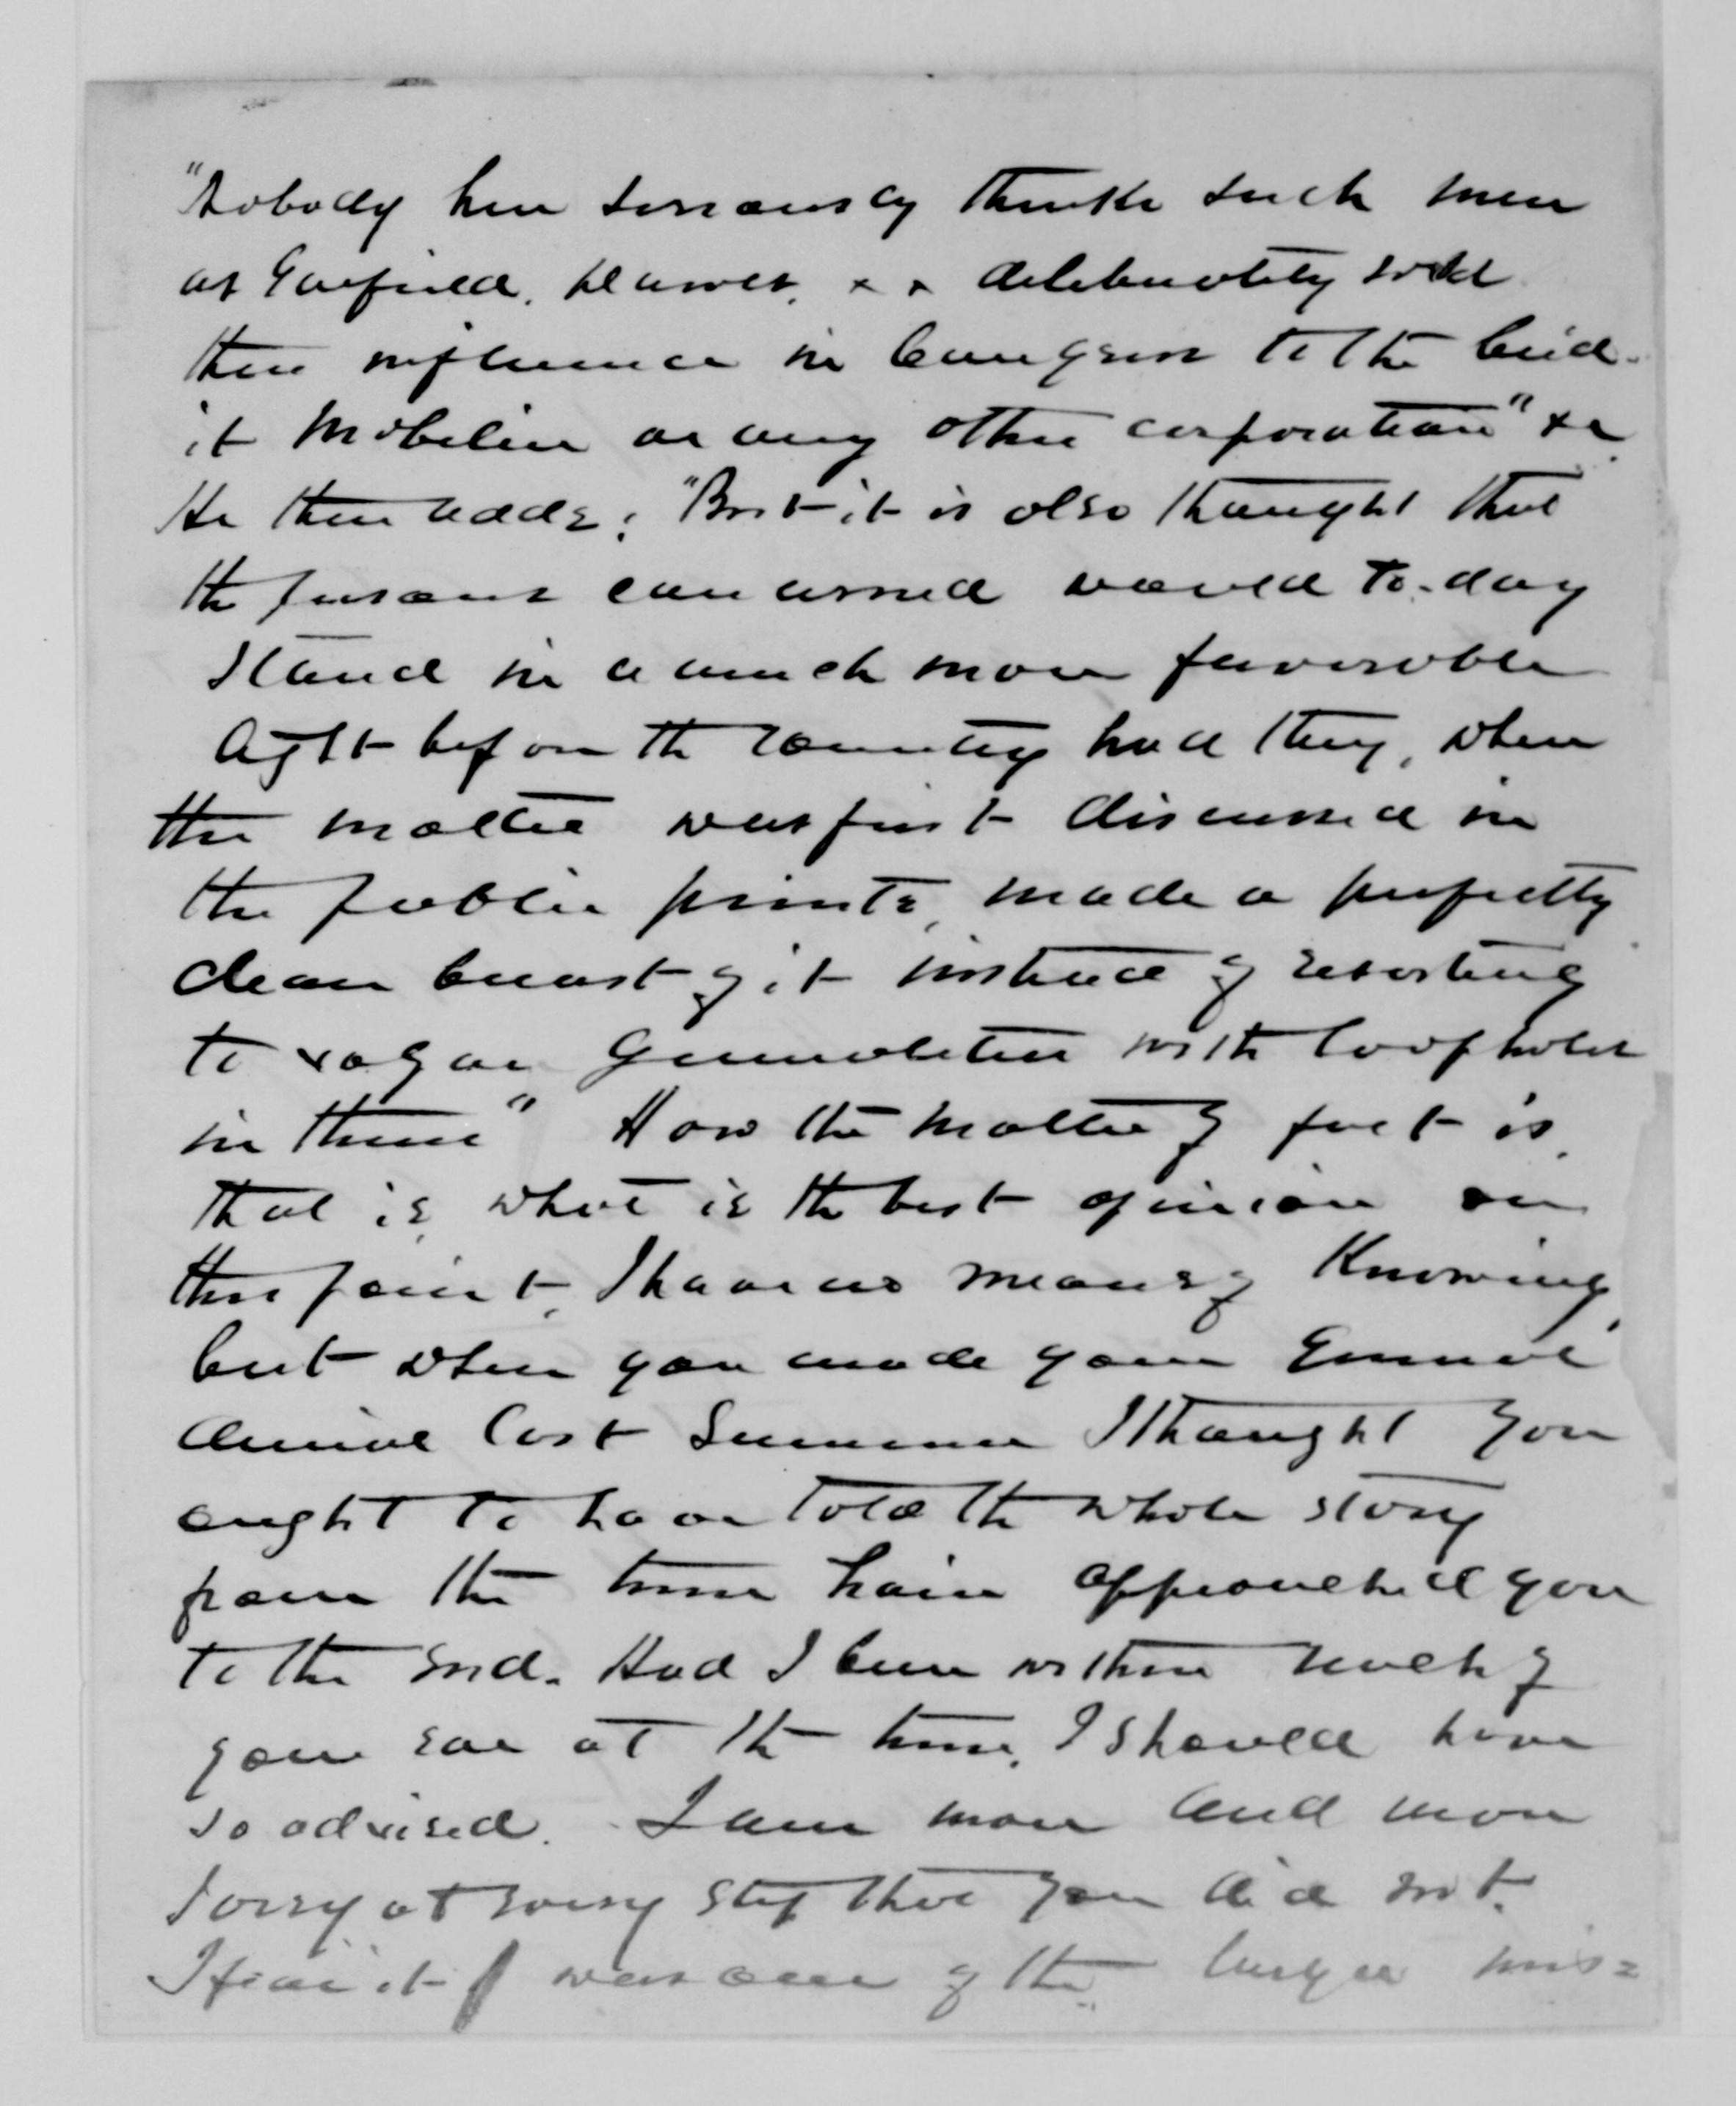 "Nobody here seriously thinks such men
as Garfield, Dawes, x x deliberately sold
their influence in Congress to the Cred-
it Mobilier or any other corporation" &c.
He then adds; "But it is also thought that
the persons concerned would to-day
stand in a much more favorable
light before the country had they, when
the matter was first discussed in
the public prints, made a perfectly
clean breast of it instead of resorting
to vague generalities with loop holes
in them" How the matter of fact is,
that is, what is the best opinion on
this point, I have no means of knowing,
but when you made your general
denial last Summer I thought you
ought to have told the whole story
from the time Train approached you
to the end. Had I been within reach of
your ear at the time, I should have
so advised. I am more and more
sorry at every step that you did not.
I fear it was one of the larger mis=